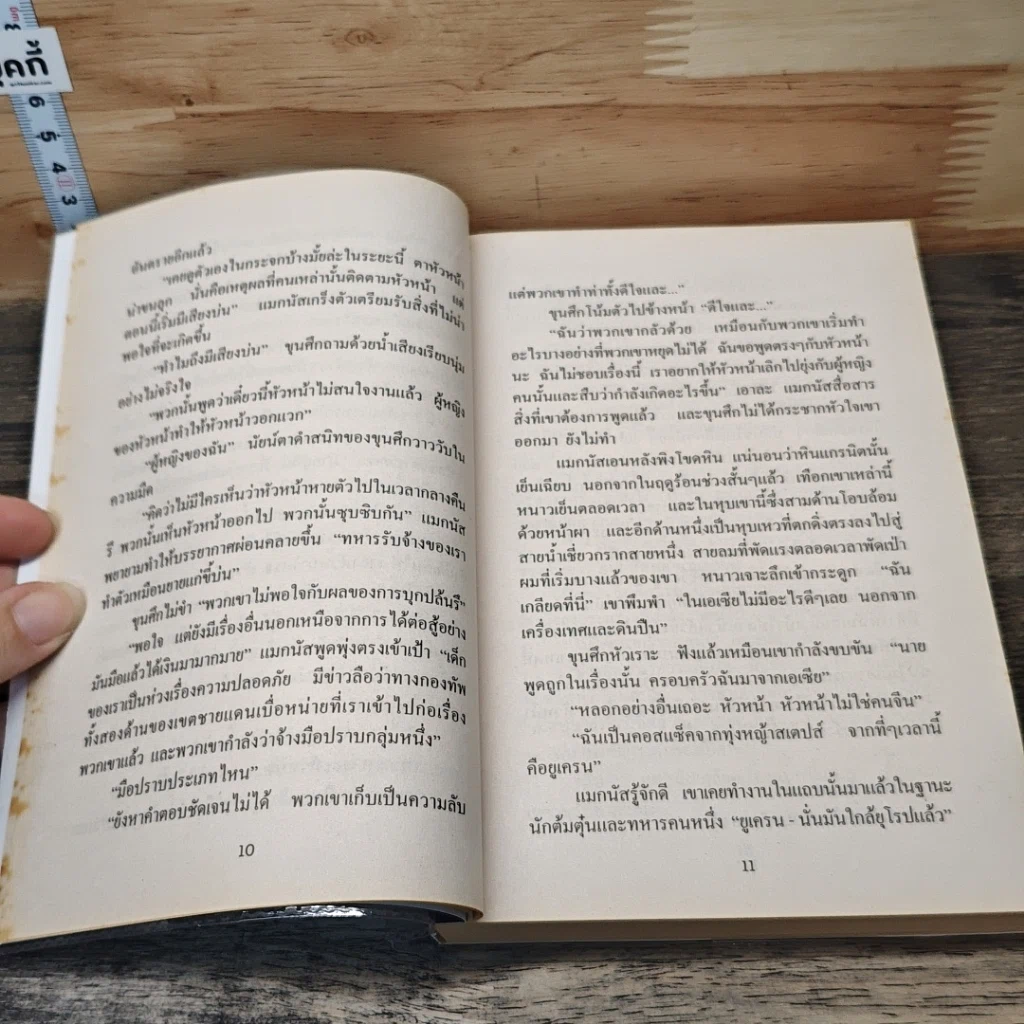 ุคกี้
6
5
4
3
อันตรายอีกแล้ว
"เคยดูตัวเองในกระจกบ้างมั้ยล่ะในระยะนี้ ตาหัวหน้า
น่าขนลุก นั่นคือเหตุผลที่คนเหล่านั้นติดตามหัวหน้า แต่
ตอนนี้เริ่มมีเสียงบ่น" แมกนัสเกร็งตัวเตรียมรับสิ่งที่ไม่น่า
พอใจที่จะเกิดขึ้น
"ทำไมถึงมีเสียงบ่น" ขุนศึกถามด้วยน้ำเสียงเรียบนุ่ม
อย่างไม่จริงใจ
"พวกนั้นพูดว่าเดี๋ยวนี้หัวหน้าไม่สนใจงานแล้ว ผู้หญิง
ของหัวหน้าทำให้หัวหน้าวอกแวก"
"ผู้หญิงของฉัน" นัยน์ตาดำสนิทของขุนศึกวาววับใน
ความมืด
"คิดว่าไม่มีใครเห็นว่าหัวหน้าหายตัวไปในเวลากลางคืน
รึ พวกนั้นเห็นหัวหน้าออกไป พวกนั้นซุบซิบกัน" แมกนัส
พยายามทำให้บรรยากาศผ่อนคลายขึ้น "ทหารรับจ้างของเรา
ทำตัวเหมือนยายแก่ขี้บ่น"
ขุนศึกไม่ขำ "พวกเขาไม่พอใจกับผลของการบุกปล้นรึ"
"พอใจ แต่ยังมีเรื่องอื่นนอกเหนือจากการได้ต่อสู้อย่าง
มันมือแล้วได้เงินมามากมาย" แมกนัสพูดพุ่งตรงเข้าเป้า "เด็ก
ของเราเป็นห่วงเรื่องความปลอดภัย มีข่าวลือว่าทางกองทัพ
ทั้งสองด้านของเขตชายแดนเบื่อหน่ายที่เราเข้าไปก่อเรื่อง
พวกเขาแล้ว และพวกเขากำลังว่าจ้างมือปราบกลุ่มหนึ่ง"
"มือปราบประเภทไหน"
"ยังหาคำตอบชัดเจนไม่ได้ พวกเขาเก็บเป็นความลับ
10
แต่พวกเขาทำท่าทั้งดีใจและ..."
ขุนศึกโน้มตัวไปข้างหน้า "ดีใจและ..."
"ฉันว่าพวกเขากลัวด้วย เหมือนกับพวกเขาเริ่มทำ
อะไรบางอย่างที่พวกเขาหยุดไม่ได้ ฉันขอพูดตรงๆกับหัวหน้า
นะ ฉันไม่ชอบเรื่องนี้ เราอยากให้หัวหน้าเลิกไปยุ่งกับผู้หญิง
คนนั้นและสืบว่ากำลังเกิดอะไรขึ้น" เอาละ แมกนัสสื่อสาร
สิ่งที่เขาต้องการพูดแล้ว และขุนศึกไม่ได้กระชากหัวใจเขา
ออกมา ยังไม่ทำ
แมกนัสเอนหลังพิงโขดหิน แน่นอนว่าหินแกรนิตนั้น
เย็นเฉียบ นอกจากในฤดูร้อนช่วงสั้นๆแล้ว เทือกเขาเหล่านี้
หนาวเย็นตลอดเวลา และในหุบเขานี้ซึ่งสามด้านโอบล้อม
ด้วยหน้าผา และอีกด้านหนึ่งเป็นหุบเหวที่ตกดิ่งตรงลงไปสู่
สายน้ำเชี่ยวกรากสายหนึ่ง สายลมที่พัดแรงตลอดเวลาพัดเป่า
ผมที่เริ่มบางแล้วของเขา หนาวเจาะลึกเข้ากระดูก "ฉัน
เกลียดที่นี่" เขาพึมพำ "ในเอเซียไม่มีอะไรดีๆเลย นอกจาก
เครื่องเทศและดินปืน"
ขุนศึกหัวเราะ ฟังแล้วเหมือนเขากำลังขบขัน "นาย
พูดถูกในเรื่องนั้น ครอบครัวฉันมาจากเอเซีย"
"หลอกอย่างอื่นเถอะ หัวหน้า หัวหน้าไม่ใช่คนจีน"
"ฉันเป็นคอสแซ็คจากทุ่งหญ้าสเตปส์ จากที่ๆเวลานี้
คือยูเครน"
แมกนัสรู้จักดี เขาเคยทำงานในแถบนั้นมาแล้วในฐานะ
นักต้มตุ๋นและทหารคนหนึ่ง "ยูเครน - นั่นมันใกล้ยุโรปแล้ว"
11